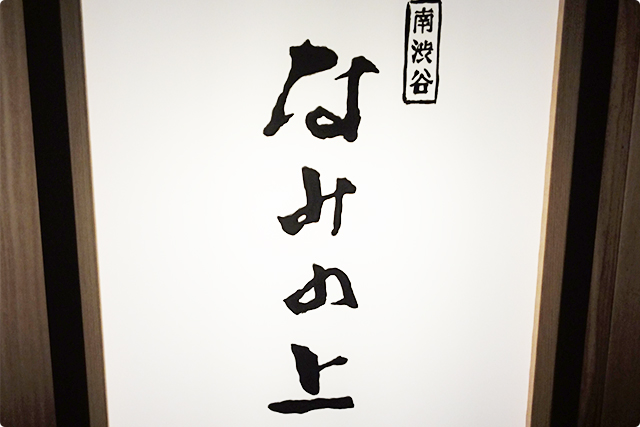 南渋谷
なみの上